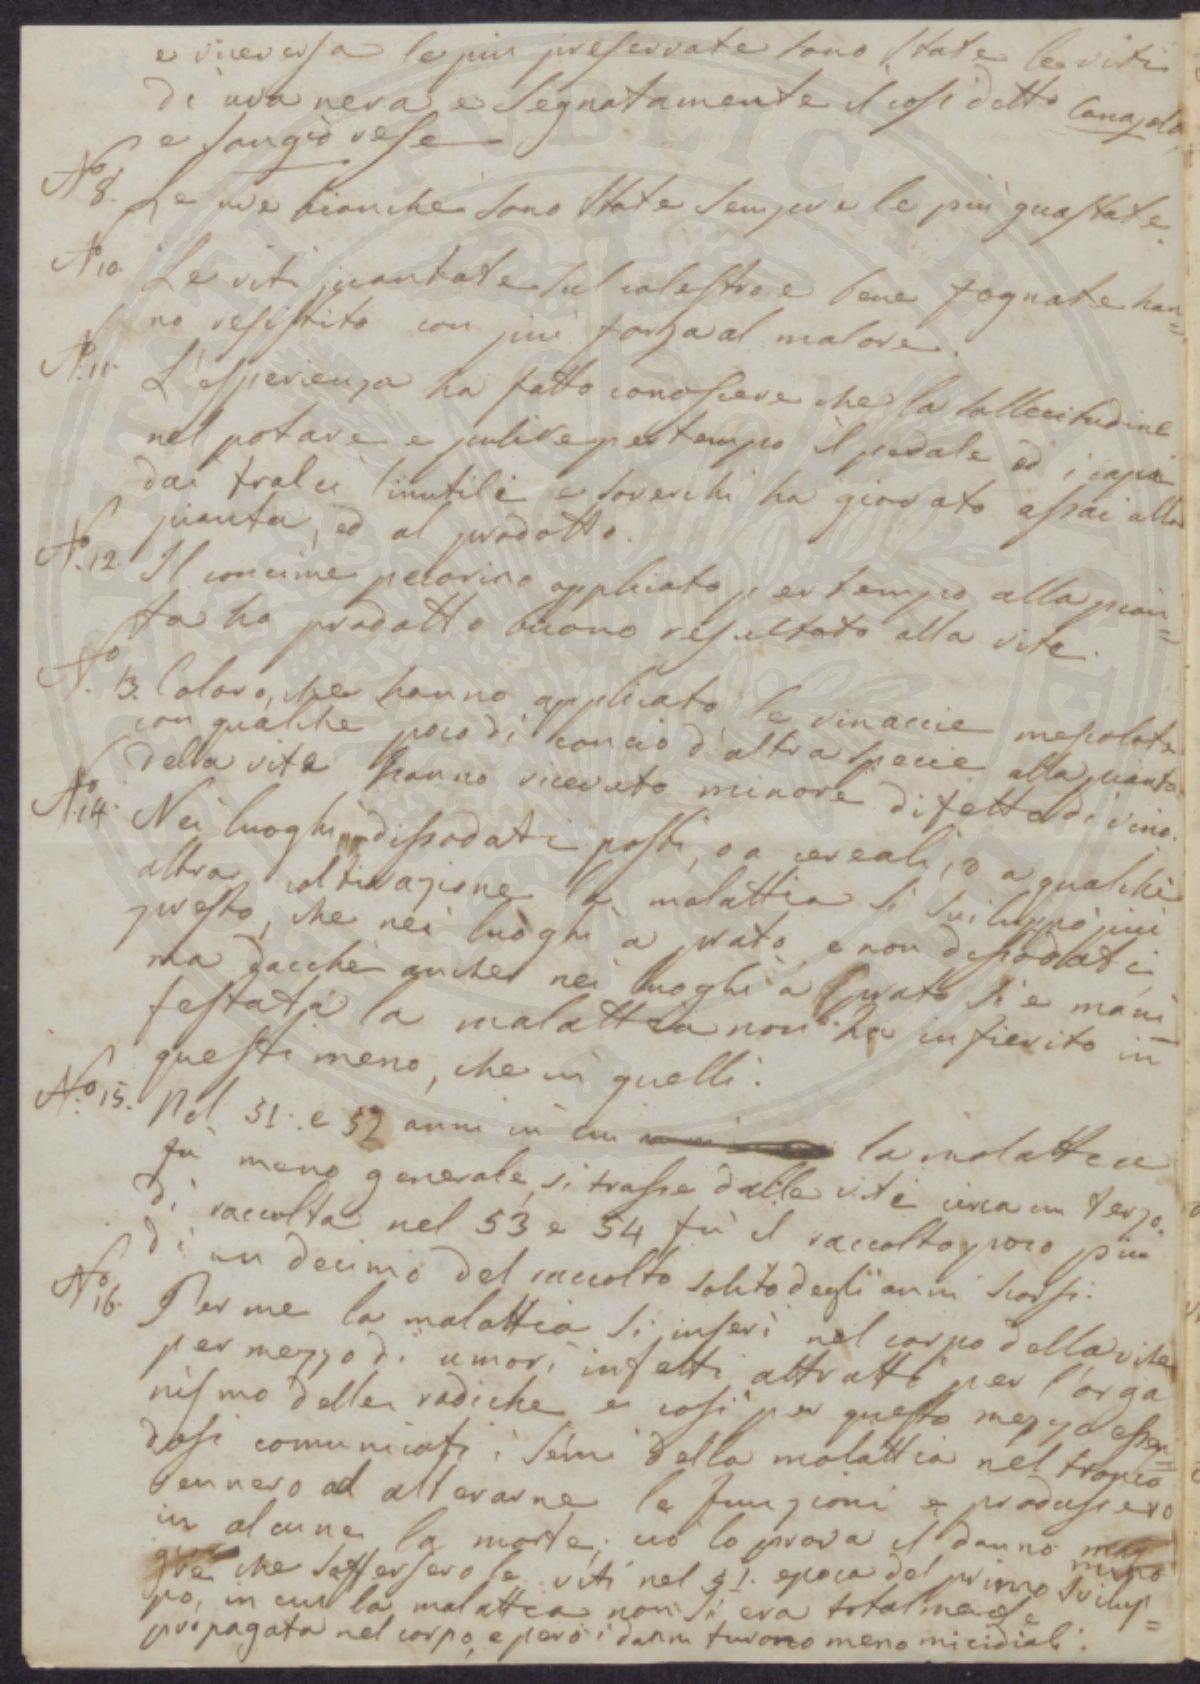 e viceversa le piu preservate sono state le viti
di uva nera e segnatamente il così detto Canajolo,
e sangiovese
N.o 8. Le uve bianche sono state sempre le più guastate.
N.o 10. Le viti piantate sul galestro e bene fognate han=
no resistito con più forza al malore.
N.o 11. L'esperienza ha fatto conoscere che la sollecitudine
nel potare e pulire per tempo il pedale ed i capi
dai tralci inutili e soverchi ha giovato assai alla
pianta, ed al prodotto.
N.o 12. Il concime pecorino applicato per tempo alla pian=
ta ha prodotto buono resultato alla vite.
N.o 13. Coloro, che hanno applicato le vinaccie mescolate
con qualche poco di concio d'altra specie alla pianta
della vite hanno ricevuto minore difetto di vino.
N.o 14. Nei luoghi dissodati posti, o a cereali, o a qualche
altra coltivazione la malattia si sviluppò più
presto, che nei luoghi a prato, e non dissodati,
ma dacchè anche nei luoghi a prato si è mani=
festata la malattia non ha infierito in
questi meno, che in quelli.
N.o 15. Nel 51. e 52 anni in cui la malattia
fù meno generale, si trasse dalle viti circa un terzo.
di raccolta nel 53 e 54 fù il raccolto poco piu
di un decimo del raccolto solito degli anni scorsi.
N.o 16. Per me la malattia si inserì nel corpo della vite
per mezzo di umori infetti attratti per l'orga
nismo delle radiche e così per questo mezzo essen=
dosi comunicati i semi della malattia nel tronco
vennero ad alterarne le funzioni e produssero
in alcune la morte; ciò lo prova il danno
minore che soffersero le viti nel 51. epoca del primo svilup=
po, in cui la malattia non si era totalmente
propagata nel corpo, e però i danni furono meno micidiali.